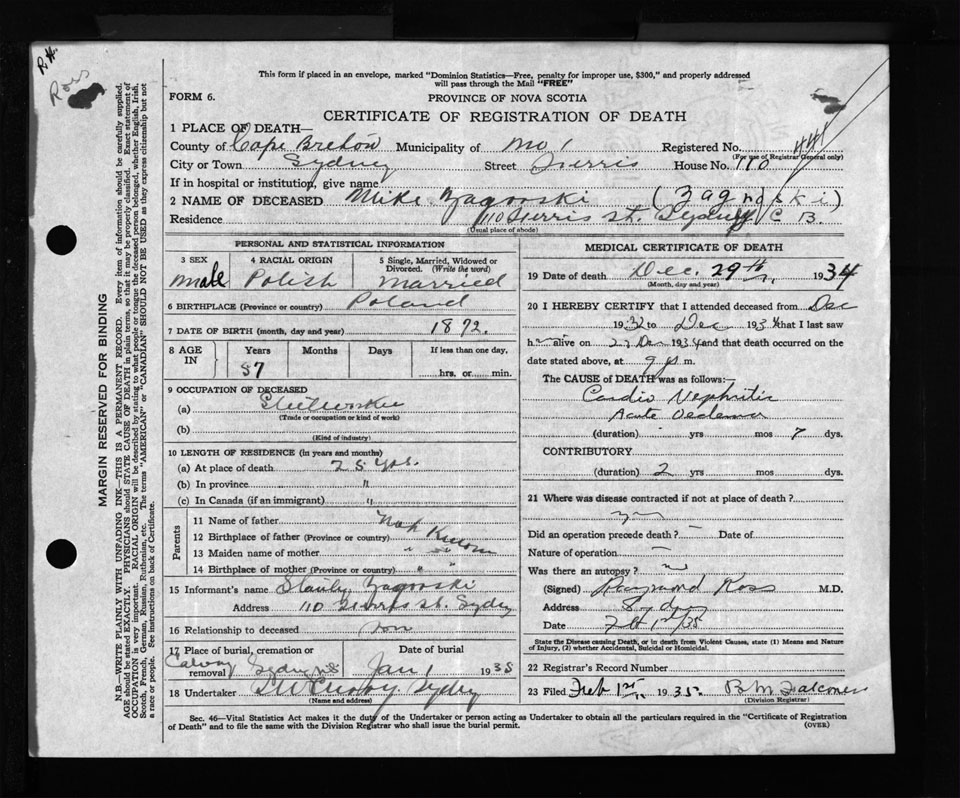 R.H.
Ross
This form if placed in an envelope, marked "Dominion Statistics—Free, penalty for improper use, $300," and properly addressed
will pass through the Mail "FREE"
FORM 6.
PROVINCE OF NOVA SCOTIA
CERTIFICATE OF REGISTRATION OF DEATH
1 PLACE OF DEATH—
County of Cape Breton Municipality of No 1 Registered No.
(For use of Registrar General only)
City or Town Sydney Street Ferris House No. 110
If in hospital or institution, give name
2 NAME OF DECEASED Mike Zagorski (Zagroski)
Residence 110 Ferris St. Sydney C B.
(Usual place of abode)
PERSONAL AND STATISTICAL INFORMATION
3 SEX male
4 RACIAL ORIGIN Polish
5 Single, Married, Widowed or Divorced. (Write the word) Married
6 BIRTHPLACE (Province or country) Poland
7 DATE OF BIRTH (month, day and year) 1872.
8 AGE IN Years Months Days If less than one day,
57 hrs. or min.
9 OCCUPATION OF DECEASED
(a) Steelworker
(Trade or occupation or kind of work)
(b)
(Kind of industry)
10 LENGTH OF RESIDENCE (in years and months)
(a) At place of death 25 yrs.
(b) In province "
(c) In Canada (if an immigrant) "
Parents
11 Name of father Not Known
12 Birthplace of father (Province or country)
13 Maiden name of mother " "
14 Birthplace of mother (Province or country) " "
15 Informant's name Stanley Zagorski
Address 110 Ferris St. Sydney
16 Relationship to deceased son
17 Place of burial, cremation or removal Calvary Sydney NS Date of burial Jan 1 1935
18 Undertaker Sydney
(Name and address)
MEDICAL CERTIFICATE OF DEATH
19 Date of death Dec. 29th 1934
(Month, day and year)
20 I HEREBY CERTIFY that I attended deceased from Dec
1932 to Dec 1934 that I last saw
h alive on Dec 1934 and that death occurred on the
date stated above, at 9 p m.
The CAUSE of DEATH was as follows:—
Cardio Nephritis
Acute Oedema
(duration) - yrs mos 7 dys.
CONTRIBUTORY
(duration) 2 yrs mos dys.
21 Where was disease contracted if not at place of death?
Did an operation precede death? Date of
Nature of operation —
Was there an autopsy? no
(Signed) Raymond Ross M.D.
Address Sydney
Date Feb 1st/35
State the Disease causing Death, or in death from Violent Causes, state (1) Means and Nature
of Injury, (2) whether Accidental, Suicidal or Homicidal.
22 Registrar's Record Number
23 Filed Feb 1st 1935. B. M. Falconer
(Division Registrar)
Sec. 46—Vital Statistics Act makes it the duty of the Undertaker or person acting as Undertaker to obtain all the particulars required in the "Certificate of Registration
of Death" and to file the same with the Division Registrar who shall issue the burial permit.
(OVER)
MARGIN RESERVED FOR BINDING
N.B.—WRITE PLAINLY WITH UNFADING INK—THIS IS A PERMANENT RECORD. Every item of information should be carefully supplied.
AGE should be stated EXACTLY. PHYSICIANS should STATE CAUSE OF DEATH in plain terms, so that it may be properly classified. Exact statement of
OCCUPATION is very important. RACIAL ORIGIN will be described by stating to what people or tongue the deceased person belonged, whether English, Irish,
Scotch, French, German, Russian, Ruthenian, etc. The terms "AMERICAN" or "CANADIAN" SHOULD NOT BE USED as they express citizenship but not
a race or people. See instructions on back of Certificate.